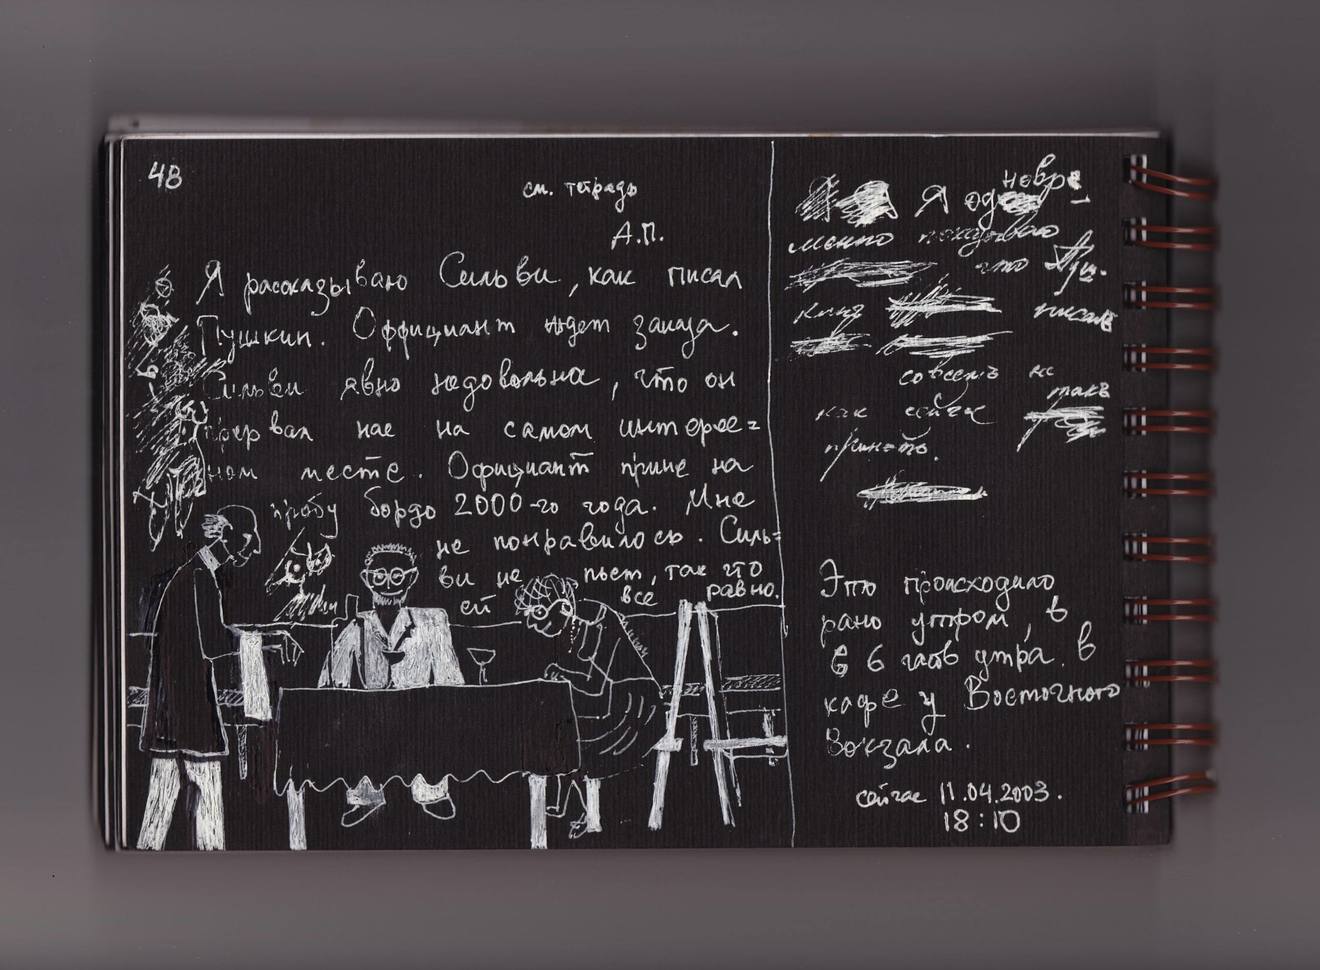 48
см. тетрадь
А.П.
Я рассказываю Сильви, как писал
Пушкин. Оффициант ждет заказа.
Сильви явно недовольна, что он
прервал нас на самом интерес=
ном месте. Официант прине на
пробу бордо 2000-го года. Мне
не понравилось. Силь=
ви не пьет, так что
ей все равно.
Я одновре-
менно показываю
что Пуш-
кинъ писалъ
совсемъ не
такъ
как сейчас
принято.
Это происходило
рано утром, в
в 6 часов утра. в
кафе у Восточного
Вокзала.
сейчас 11.04.2003.
18:10